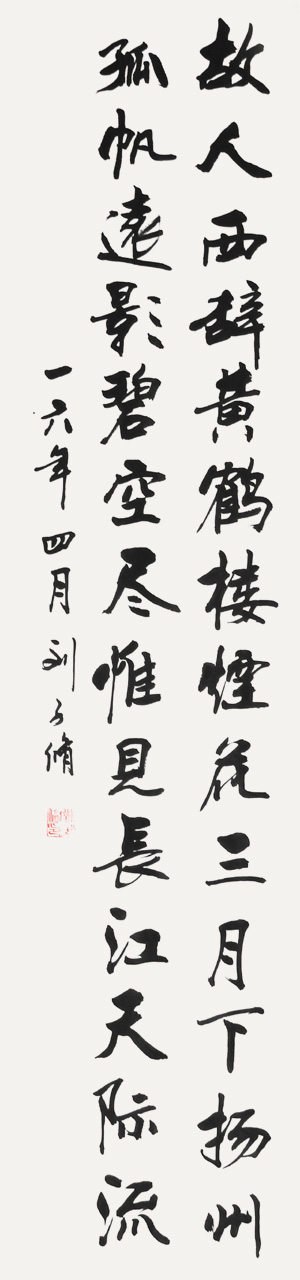 故人西辞黄鶴楼煙花三月下扬州
孤帆遠影碧空尽惟見長江天际流
一六年四月刘子脩